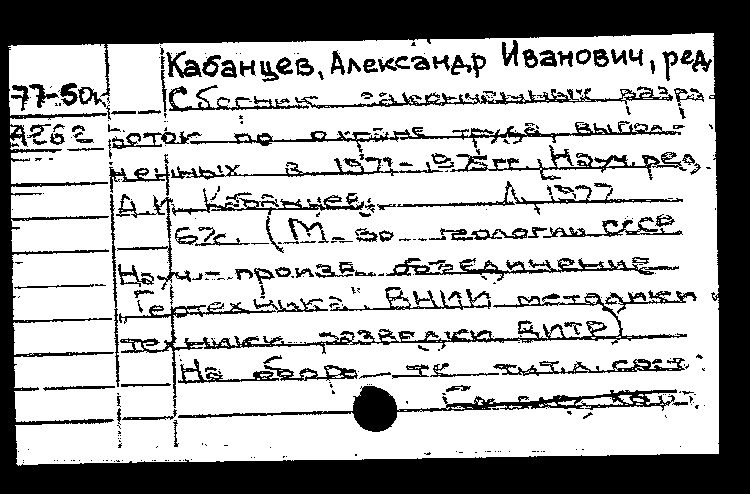 Кабанцев, Александр Иванович, ред.
77-50к Сборник законченных разра-
4262 боток по охране труда, выпол-
ненных в 1971-1975 гг. Науч. ред.
А.И. Кабанцев. Л., 1977
67с. (М-во геологии СССР
Науч.-произв. объединение
"Геотехника". ВНИИ методики и
техники разведки ВИТР)
На обороте тит. л. сост.: